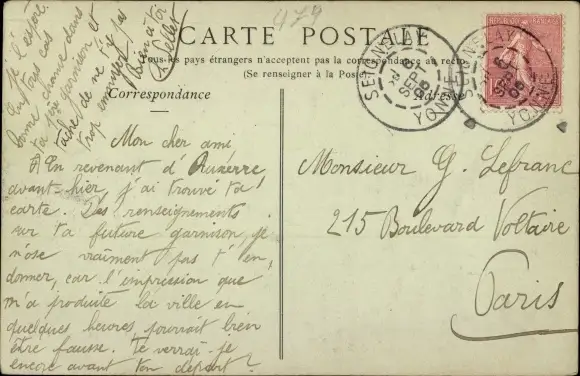 479
CARTE POSTALE
Tous les pays étrangers n'acceptent pas la correspondance au recto
(Se renseigner à la Poste)
Correspondance
Adresse
RÉPUBLIQUE FRANÇAISE
YONNE
SEPT
YONNE
Mon cher ami
En revenant d'Auxerre,
avant-hier, j'ai trouvé ta
carte. Des renseignements
sur ta future garnison je
n'ose vraiment pas t'en
donner, car l'impression que
m'a produite la ville en
quelques heures, pourrait bien
être fausse. Te verrai-je
encore avant ton départ?
je l'espère.
En tous cas
bonne chance dans
ta garnison et
tâche de ne pas
trop
bien à toi
Monsieur G. Lefranc
215 Boulevard Voltaire
Paris